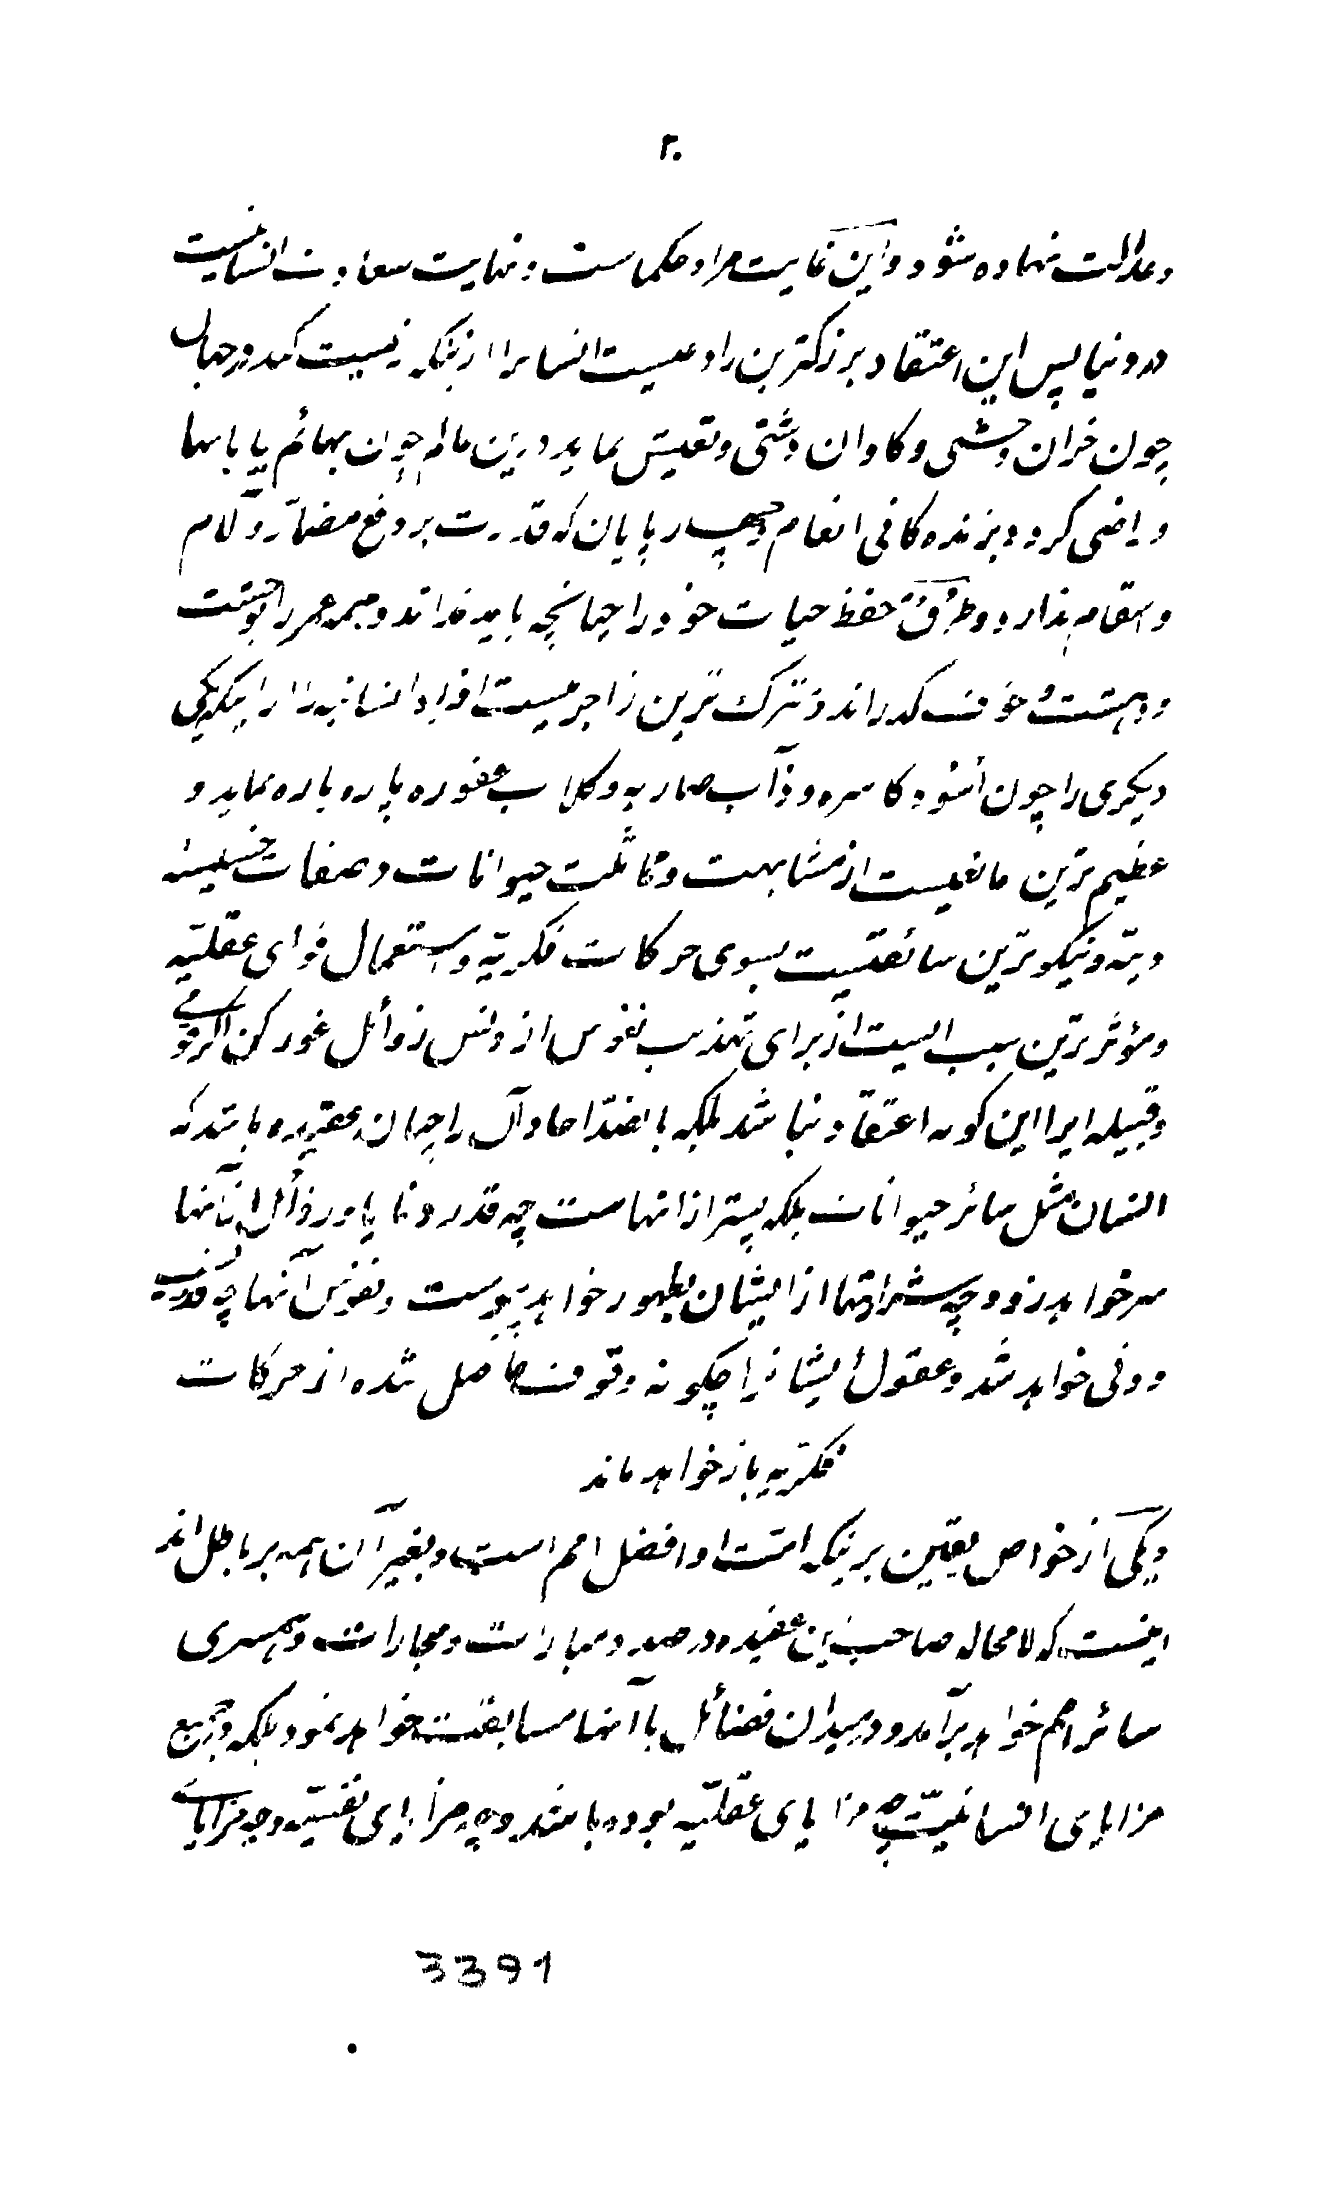 ۲۰
و عدالت نهاده شود و این غایت مراد حکماست و نهایت سعادت انسانیست
در دنیا پس این اعتقاد بزرکترین رادعیست انسانرا ازینکه زیست کند در جبال
چون خران وحشی و کاوان دشتی و تعیش نماید درین عالم چون بهائم بیابانها
و راضی کردد بزنده کافی انعام و چهارپایان که قدرت بر دفع مضارّ و آلام
و اسقام ندارد و طرُق حفظ حیات خود را چنانچه باید نداند و همه عمر را بوحشت
و دهشت و خوف کذراند و بزرک ترین زاجریست افراد انسانیه را از اینکه یکی
دیکری را چون اُسُود کاسره و ذآب ضاریه و کلاب عقوره پاره پاره نماید و
عظیم ترین مانعیست از مشابهت و مماثلت حیوانات در صفات خسیسه
دنیّه و نیکوترین سائقیست بسوی حرکات فکریّه و استعمال قوای عقلیّه
و مؤثر ترین سبب است از برای تهذیب نفوس از دنس رذائل غور کن اکر قومی
و قبیله ایرا این کونه اعتقاد نباشد بلکه بالضدّ احاد آن را چنان عقیده باشد که
انسان مثل سائر حیوانات بلکه پستر از انهاست چه قدر دنایا و رذائل از آنها
سر خواهد زد و چه شرارتها از ایشان بظهور خواهد پیوست و نفوس آنها چه قدر پست
و دنی خواهد شد و عقول ایشانرا چکونه وقوف حاصل شده از حرکات
فکریه باز خواهد ماند
و یکی از خواص یقین بر اینکه امّت او افضل امم است و بغیر آن همه بر باطل اند
اینست که لامحاله صاحب این عقیده در صدد مبارات و مجارات و همسری
سائر امم خواهد برآمد و در میدان فضائل با آنها مسابقت خواهد نمود بلکه در جمیع
مزایای انسانیّت چه مزایای عقلیّه بوده باشد و چه مزایای نفسیّه و چه مزایای
3391